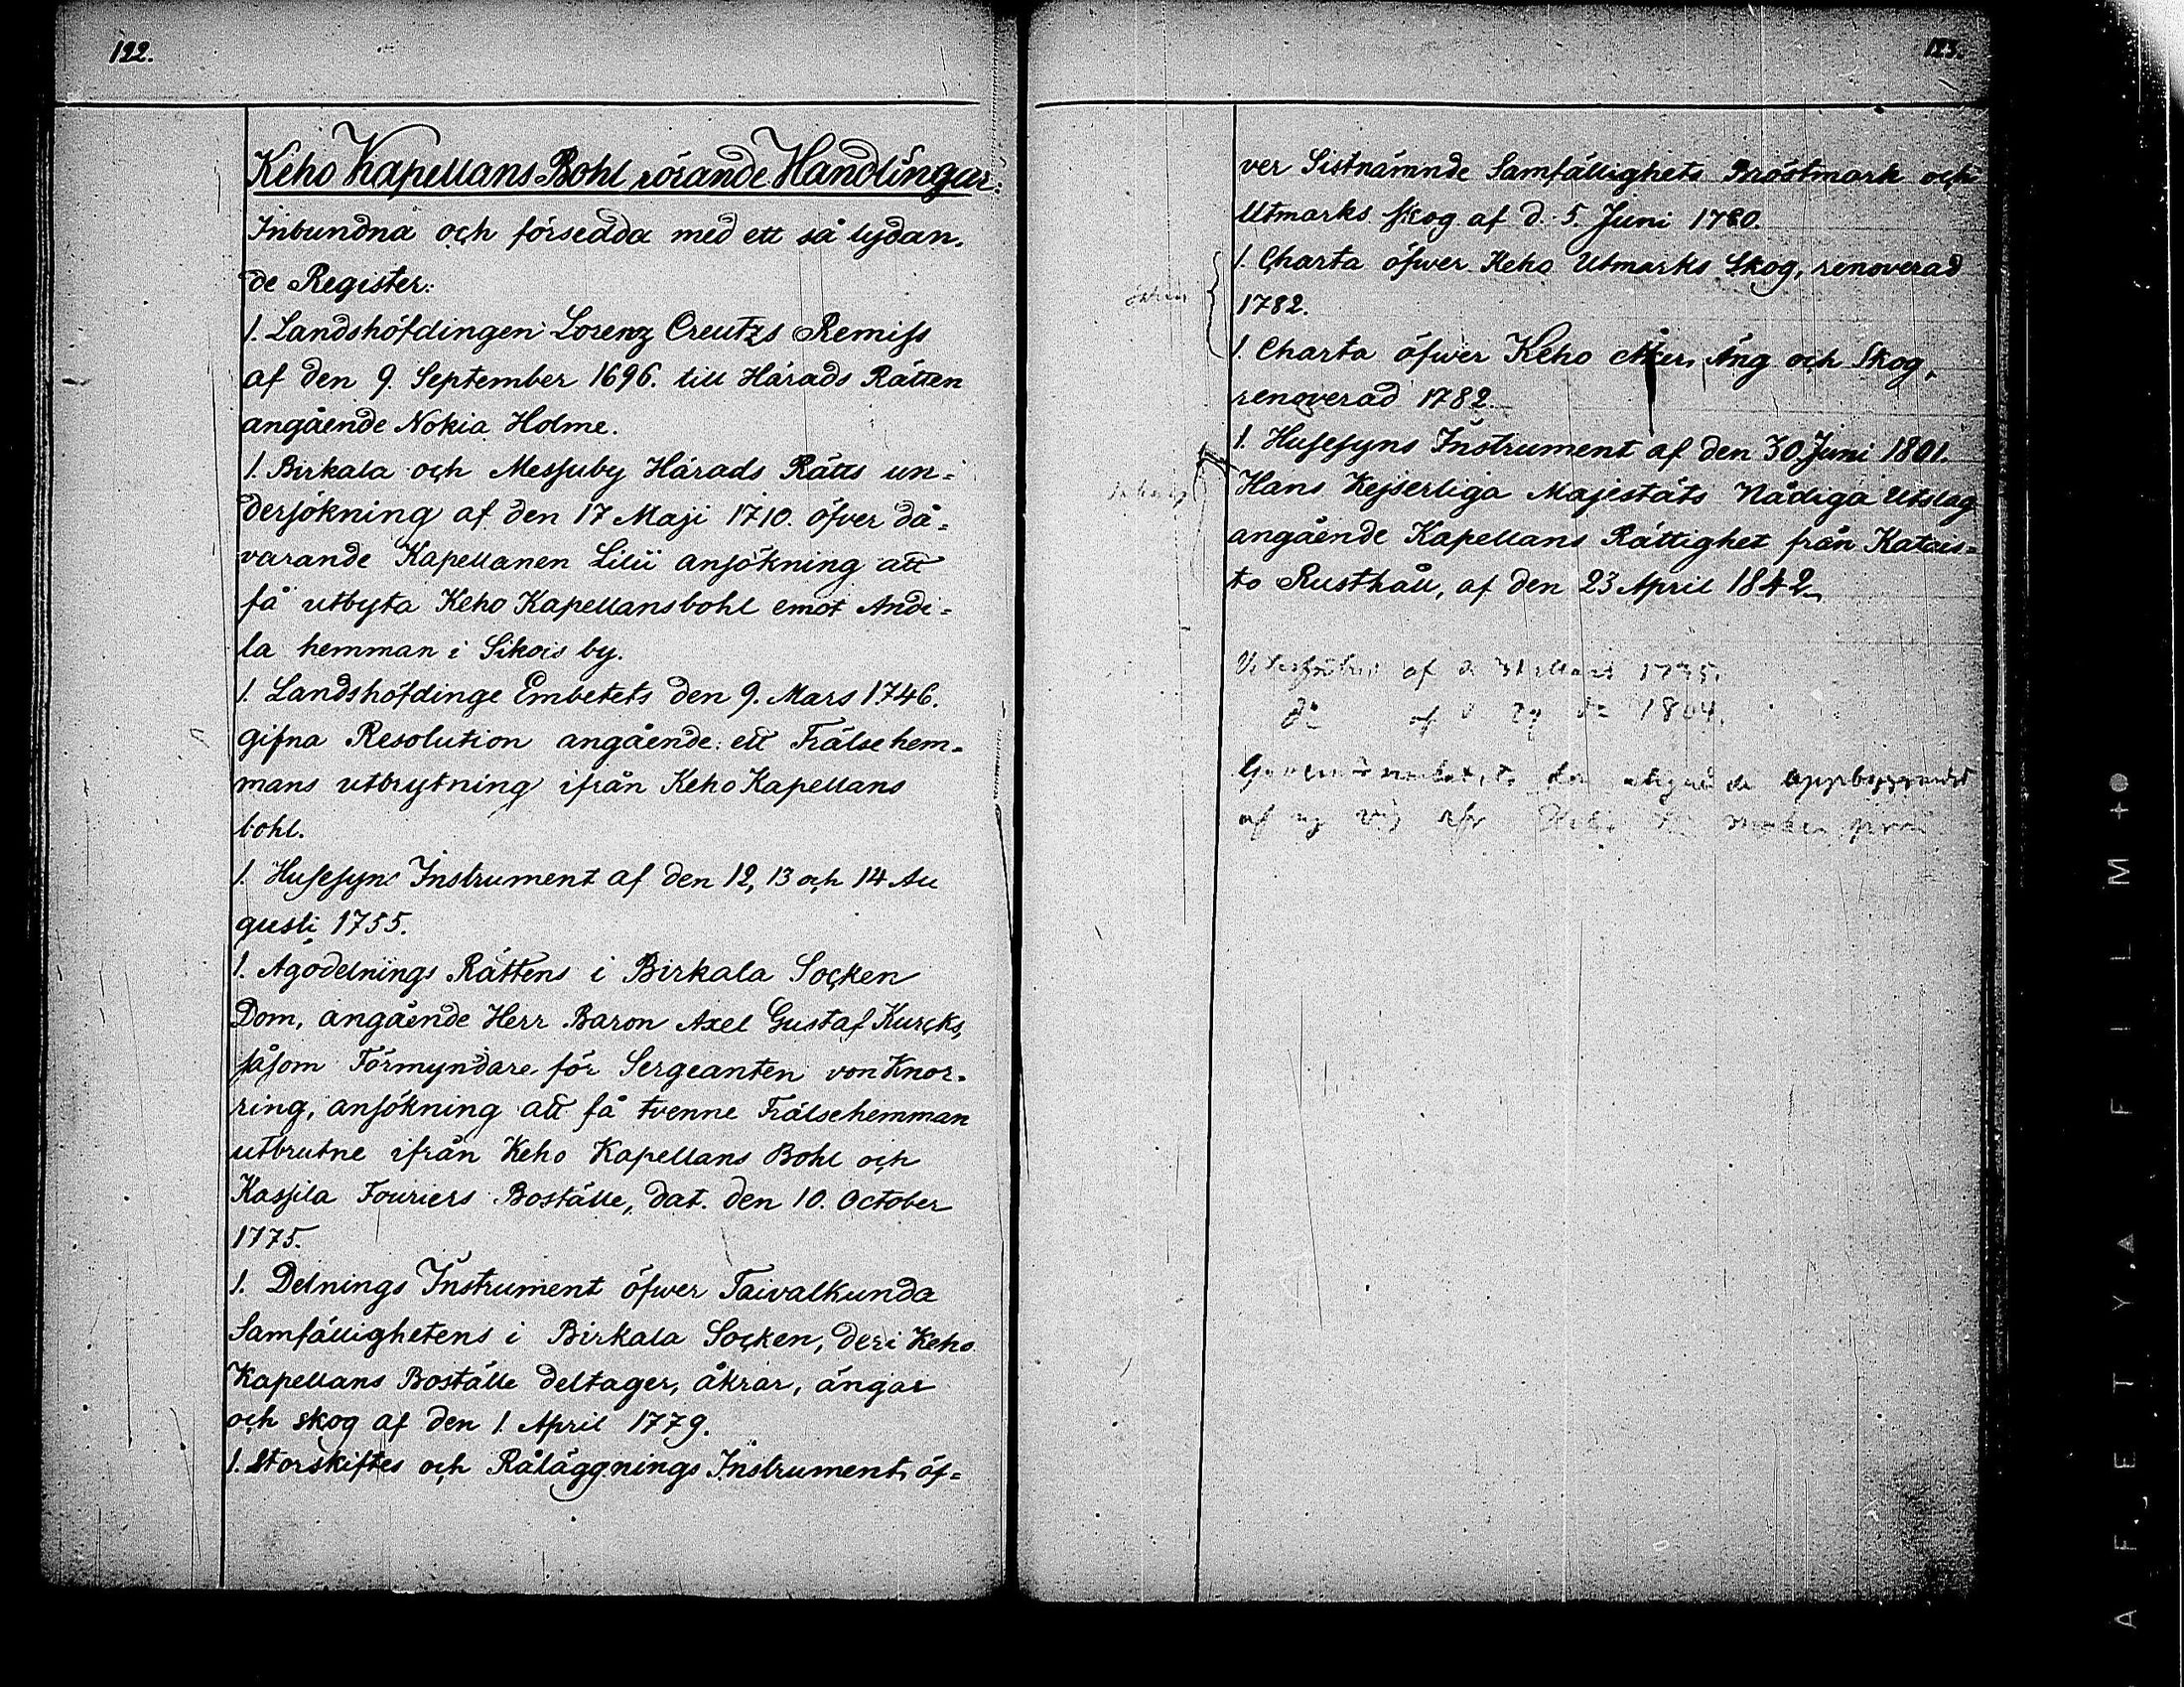 122.
Keho Kapellans Bohl rörande Handlingar:
Inbundna och försedda med ett så lydan,
de Register:
1. Landshöfdingen Lorenz Creutzs Remiss
af den 9. September 1696. till Härads Rätten
angående Nokia Holme.
1. Birkala och Messuby Härads Rätts un=
dersökning af den 17 Maji 1710. öfver då=
varande Kapellanen Lilii ansökning att
få utbyta Keho Kapellansbohl emot Andi=
la hemman i Sikois by.
1. Landshöfdinge Embetets den 9. Mars 1746.
gifna Resolution angående ett Frälsehem=
mans utbrytning ifrån Keho Kapellans
bohl.
1. Husesyns Instrument af den 12, 13 och 14 Au
gusti 1755.
1. Ägodelnings Rättens i Birkala Socken
Dom, angående Herr Baron Axel Gustaf Kurcks,
såsom Förmyndare för Sergeanten von Knor=
ring, ansökning att få tvenne Frälsehemman
utbrutne ifrån Keho Kapellans Bohl och
Kassila Fouriers Boställe, dat. den 10. October
1775.
1. Delnings Instrument öfwer Taivalkunda
Samfällighetens i Birkala Socken, deri Keho
Kapellans Boställe deltager, åkrar, ängar
och skog af den 1. April 1779.
1. Storskiftes och Råläggnings Instrument öf=
123.
ver Sistnämnde Samfällighets Bröstmark och
Utmarks skog af d. 5. Juni 1780.
1. Charta öfwer Keho Utmarks Skog, renoverad
1782.
1. Charta öfwer Keho Åker, Äng och Skog,
renoverad 1782.
1. Husesyns Instrument af den 30 Juni 1801.
Hans Kejserliga Majestäts Nådiga Utslag
angående Kapellans Rättighet från Katais=
to Rusthåll, af den 23 April 1842.
af d. 1775.
do af d. 29 do 1804.
uppbyggandet
af ny
A F.E T Y.A F I L M